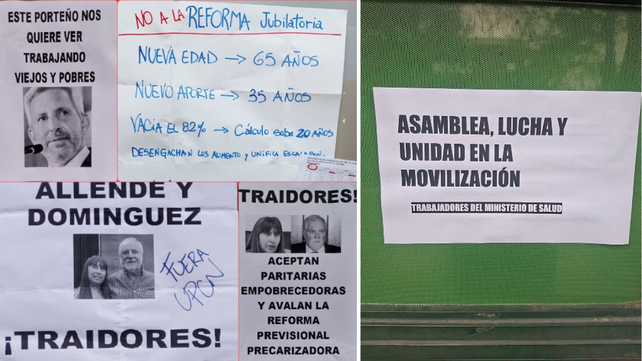 ESTE PORTEÑO NOS
QUIERE VER
TRABAJANDO
VIEJOS Y POBRES
NO A LA REFORMA Jubilatoria
NUEVA EDAD → 65 AÑOS
NUEVO APORTE → 35 AÑOS
VACIA EL 82% → Cálculo sobre 20 AÑOS
DESENGACHAN LOS AUMENTO Y UNIFICA
ALLENDE Y
DOMINGUEZ
FUERA
UPCN
¡TRAIDORES!
TRAIDORES!
ACEPTAN
PARITARIAS
EMPOBRECEDORAS
Y AVALAN LA
REFORMA
PREVISIONAL
PRECARIZADORA
ASAMBLEA, LUCHA Y
UNIDAD EN LA
MOVILIZACIÓN
TRABAJADORES DEL MINISTERIO DE SALUD